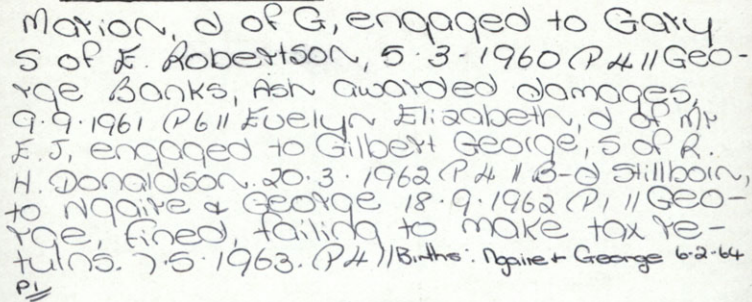 Marion, d of G, engaged to Gary
S of E. Robertson, 5.3.1960 (P4 // Geo-
rge Banks, Ash awarded damages,
9.9.1961 (P6 // Evelyn Elizabeth, d of Mr
E.J, engaged to Gilbert George, S of R.
H. Donaldson. 20.3.1962 (P4 // B-d Stillborn,
to Ngaire & George 18.9.1962 (P1 // Geo-
rge, fined, failing to make tax re-
turns. 7.5.1963. (P4) // Births: Ngaire + George 6-2-64
P1